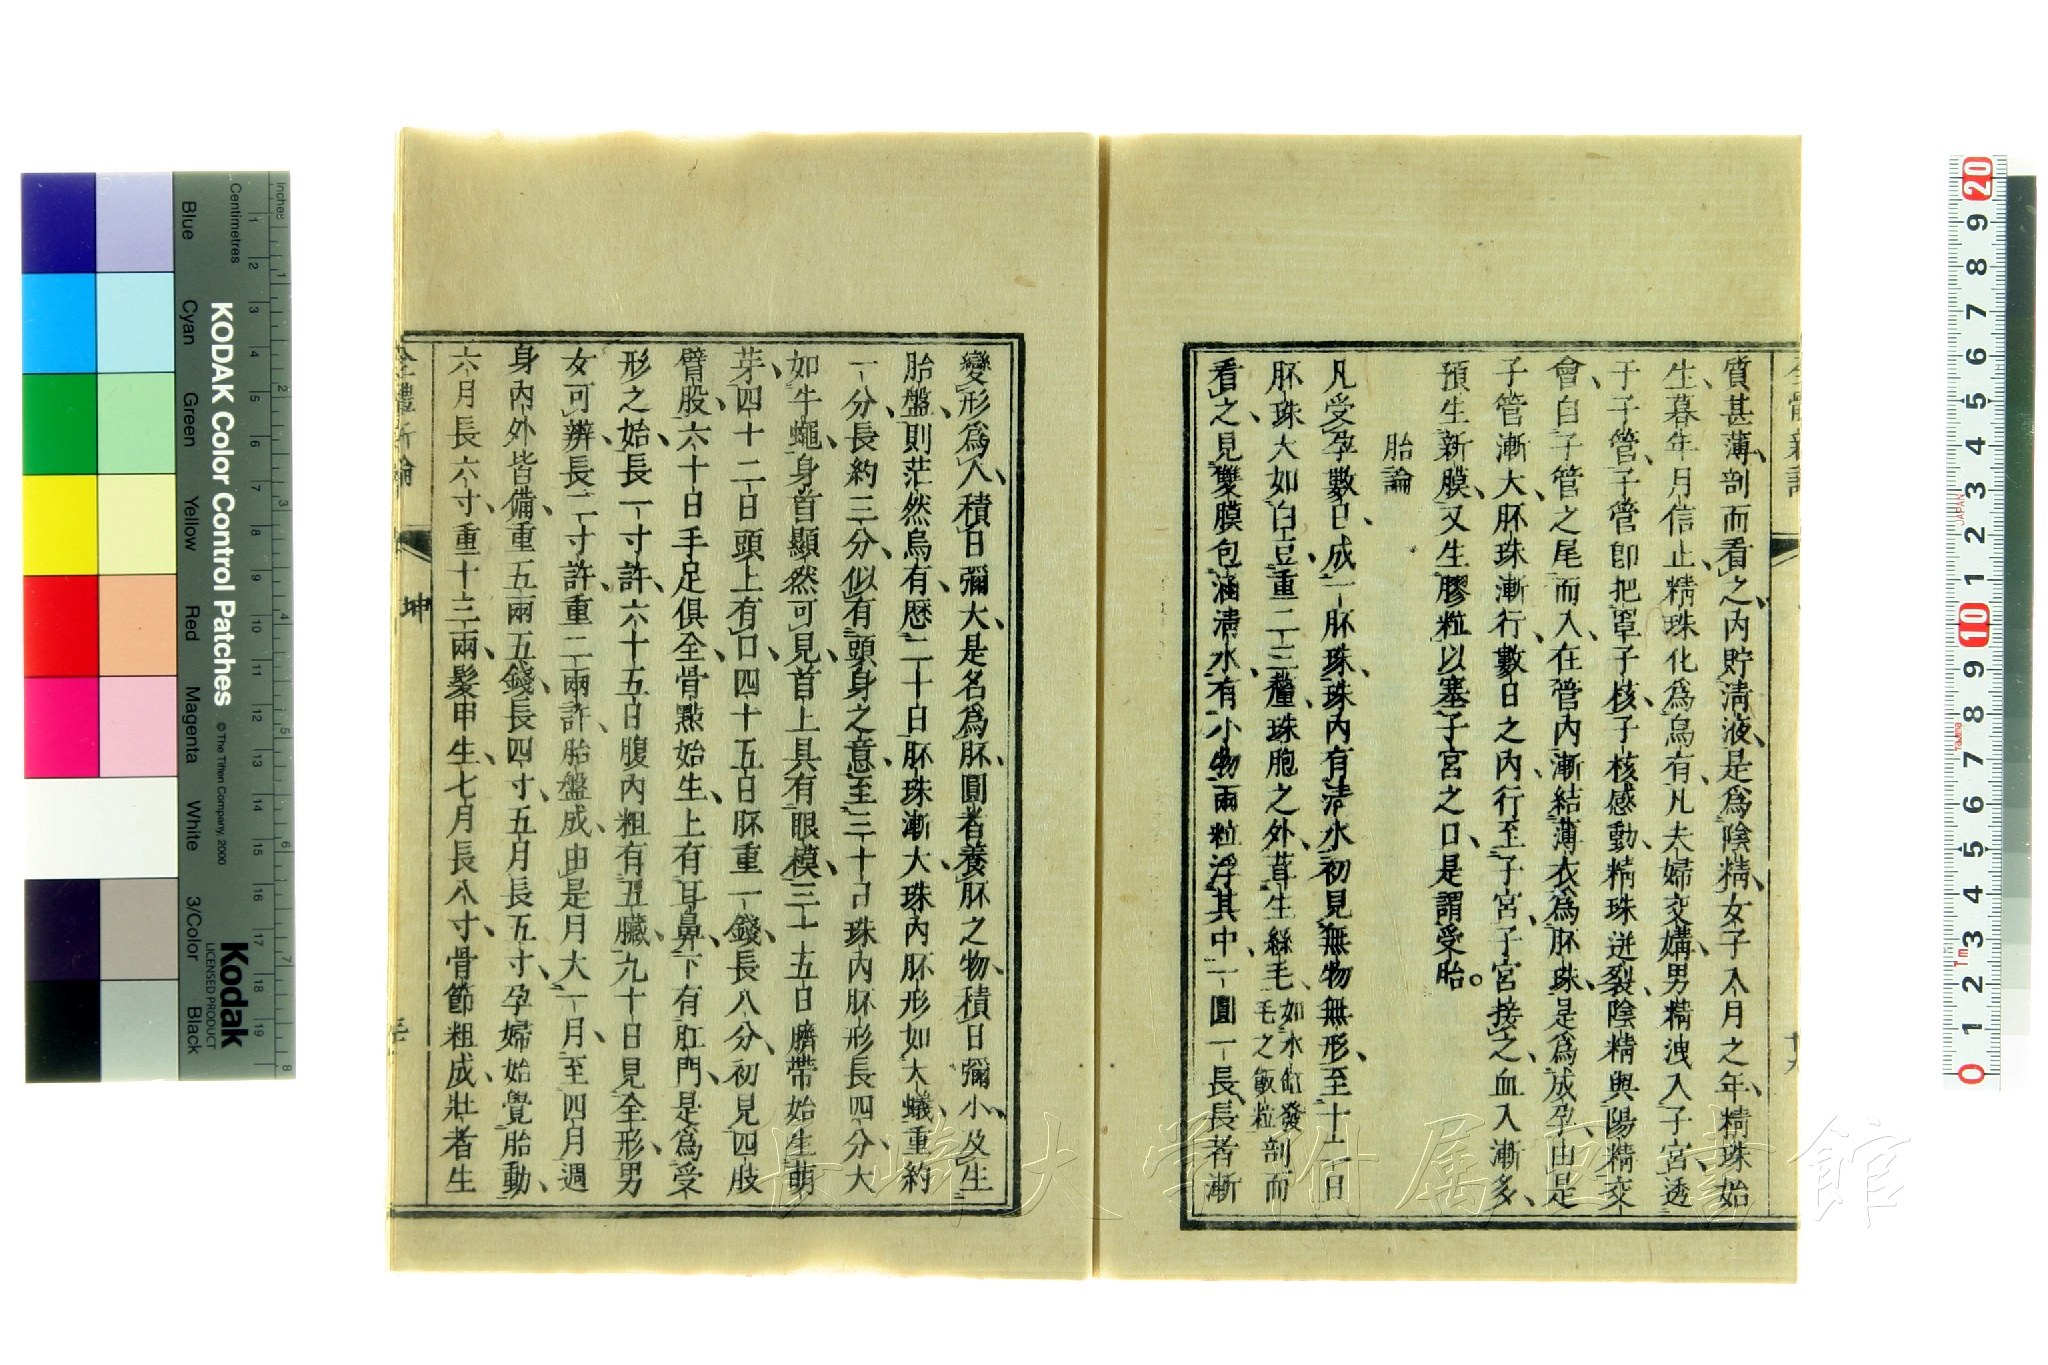 質甚薄、剖而看之、内貯清液、是爲陰精、女子入月之年、精珠始
生、暮年月信止、精珠化爲烏有、凡夫婦交媾、男精洩入子宮、透
于子管、子管卽把罩子核、子核感動、精珠迸裂、陰精與陽精交
會、自子管之尾而入、在管内漸結薄衣、爲胚珠、是爲成孕、由是
子管漸大、胚珠漸行、數日之内、行至子宮、子宮接之、血入漸多、
預生新膜、又生膠粒、以塞子宮之口、是謂受胎。
胎論
凡受孕數日、成一胚珠、珠内有清水、初見無物無形、至十二日
胚珠大如白豆、重二三釐、珠胞之外、茸生絲毛、如水缸發毛之飯粒剖而
看之、見雙膜包涵清水、有小物兩粒浮其中、一圓一長、長者漸
變形爲人、積日彌大、是名爲胚、圓者養胚之物、積日彌小、及生
胎盤、則茫然烏有、歷二十日、胚珠漸大、珠内胚形如大蟻、重約
一分、長約三分、似有頭身之意、至三十日、珠内胚形長四分、大
如牛蠅、身首顯然可見、首上具有眼模、三十五日臍帶始生萌
芽、四十二日頭上有口、四十五日胚重一錢、長八分、初見四肢
臂股、六十日手足俱全、骨點始生、上有耳鼻、下有肛門、是爲受
形之始、長一寸許、六十五日腹內粗有五臟、九十日見全形、男
女可辨、長三寸許、重二兩許、胎盤成、由是月大一月、至四月週
身內外皆備、重五兩五錢、長四寸、五月長五寸、孕婦始覺胎動、
六月長六寸、重十三兩、髮甲生、七月長八寸、骨節粗成、壯者生
全體新論
坤
KODAK Color Control Patches
© The Tiffen Company, 2000
Kodak
LICENSED PRODUCT
Inches
Centimetres
Blue
Cyan
Green
Yellow
Red
Magenta
White
3/Color
Black
長崎大学附属図書館
JAPAN